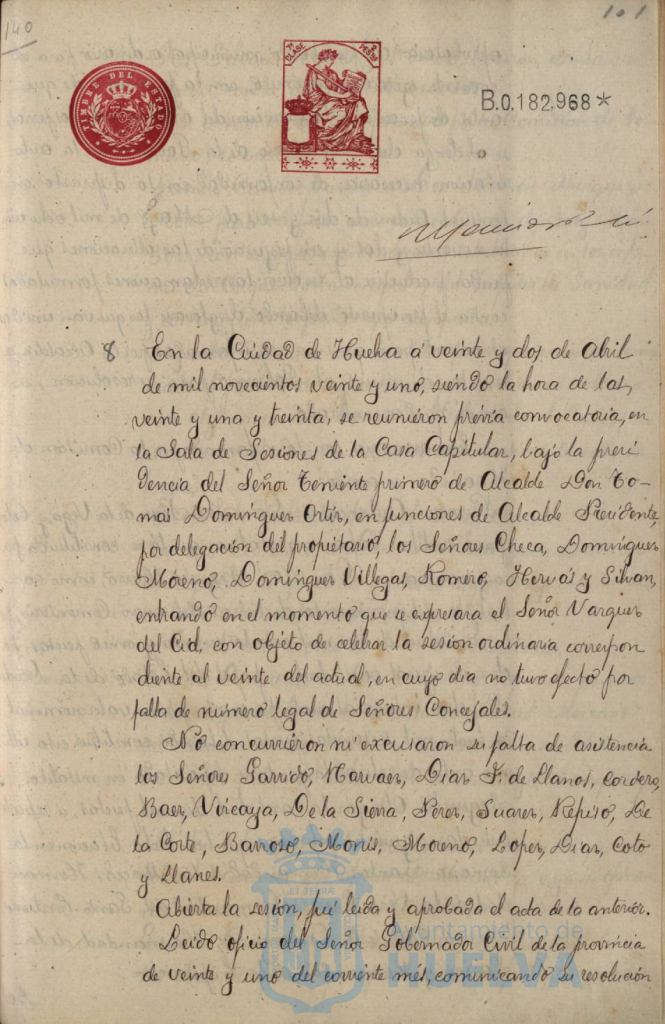 140
101
TIMBRE DEL ESTADO
7ª CLASE
2 PESTAS
B.0.182.968*
8 En la Ciudad de Huelva á veinte y dos de Abril
de mil novecientos veinte y uno, siendo la hora de las
veinte y una y treinta, se reunieron prévia convocatoria, en
la Sala de Sesiones de la Casa Capitular, bajo la presi
dencia del Señor Teniente primero de Alcalde Don To-
más Dominguez Ortiz, en funciones de Alcalde Presidente,
por delegación del propietario, los Señores Checa, Dominguez
Moreno, Dominguez Villegas, Romero, Hervás y Silvan,
entrando en el momento que se expresara el Señor Vazquez
del Cid, con objeto de celebrar la sesion ordinaria correspon
diente al veinte del actual, en cuyo dia no tuvo efecto por
falta de número legal de Señores Concejales.
No concurrieron ni excusaron su falta de asistencia
los Señores Garrido, Narvaez, Diaz F. de Llanos, Cordero,
Baez, Vizcaya, De la Sierra, Perez, Suarez, Repiso, De
la Corte, Barroso, Monis, Moreno, Lopez, Diaz, Coto
y Llanes.
Abierta la sesión, fué leida y aprobada el acta de la anterior.
Leido oficio del Señor Gobernador Civil de la provincia
de veinte y uno del corriente mes, comunicando su resolución
Ayuntamiento de
HUELVA